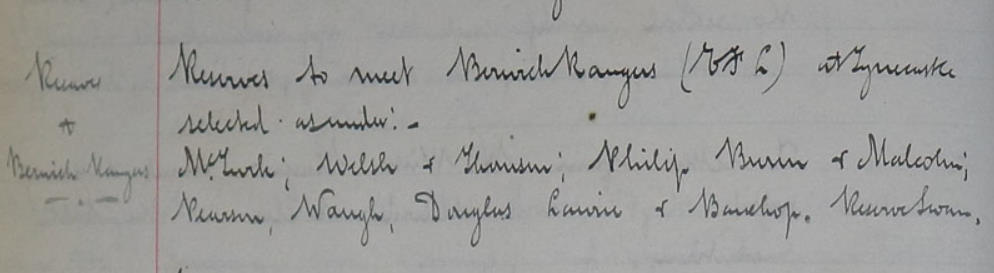 Reserve
v
Berwick Rangers
Reserves to meet Berwick Rangers (E F L) at Tynecastle
selected as under: -
Welsh & Thomson; Philip Burns & Malcolm;
Pearson, Waugh, Douglas Laurie & Bauchop. Reserve Swan.